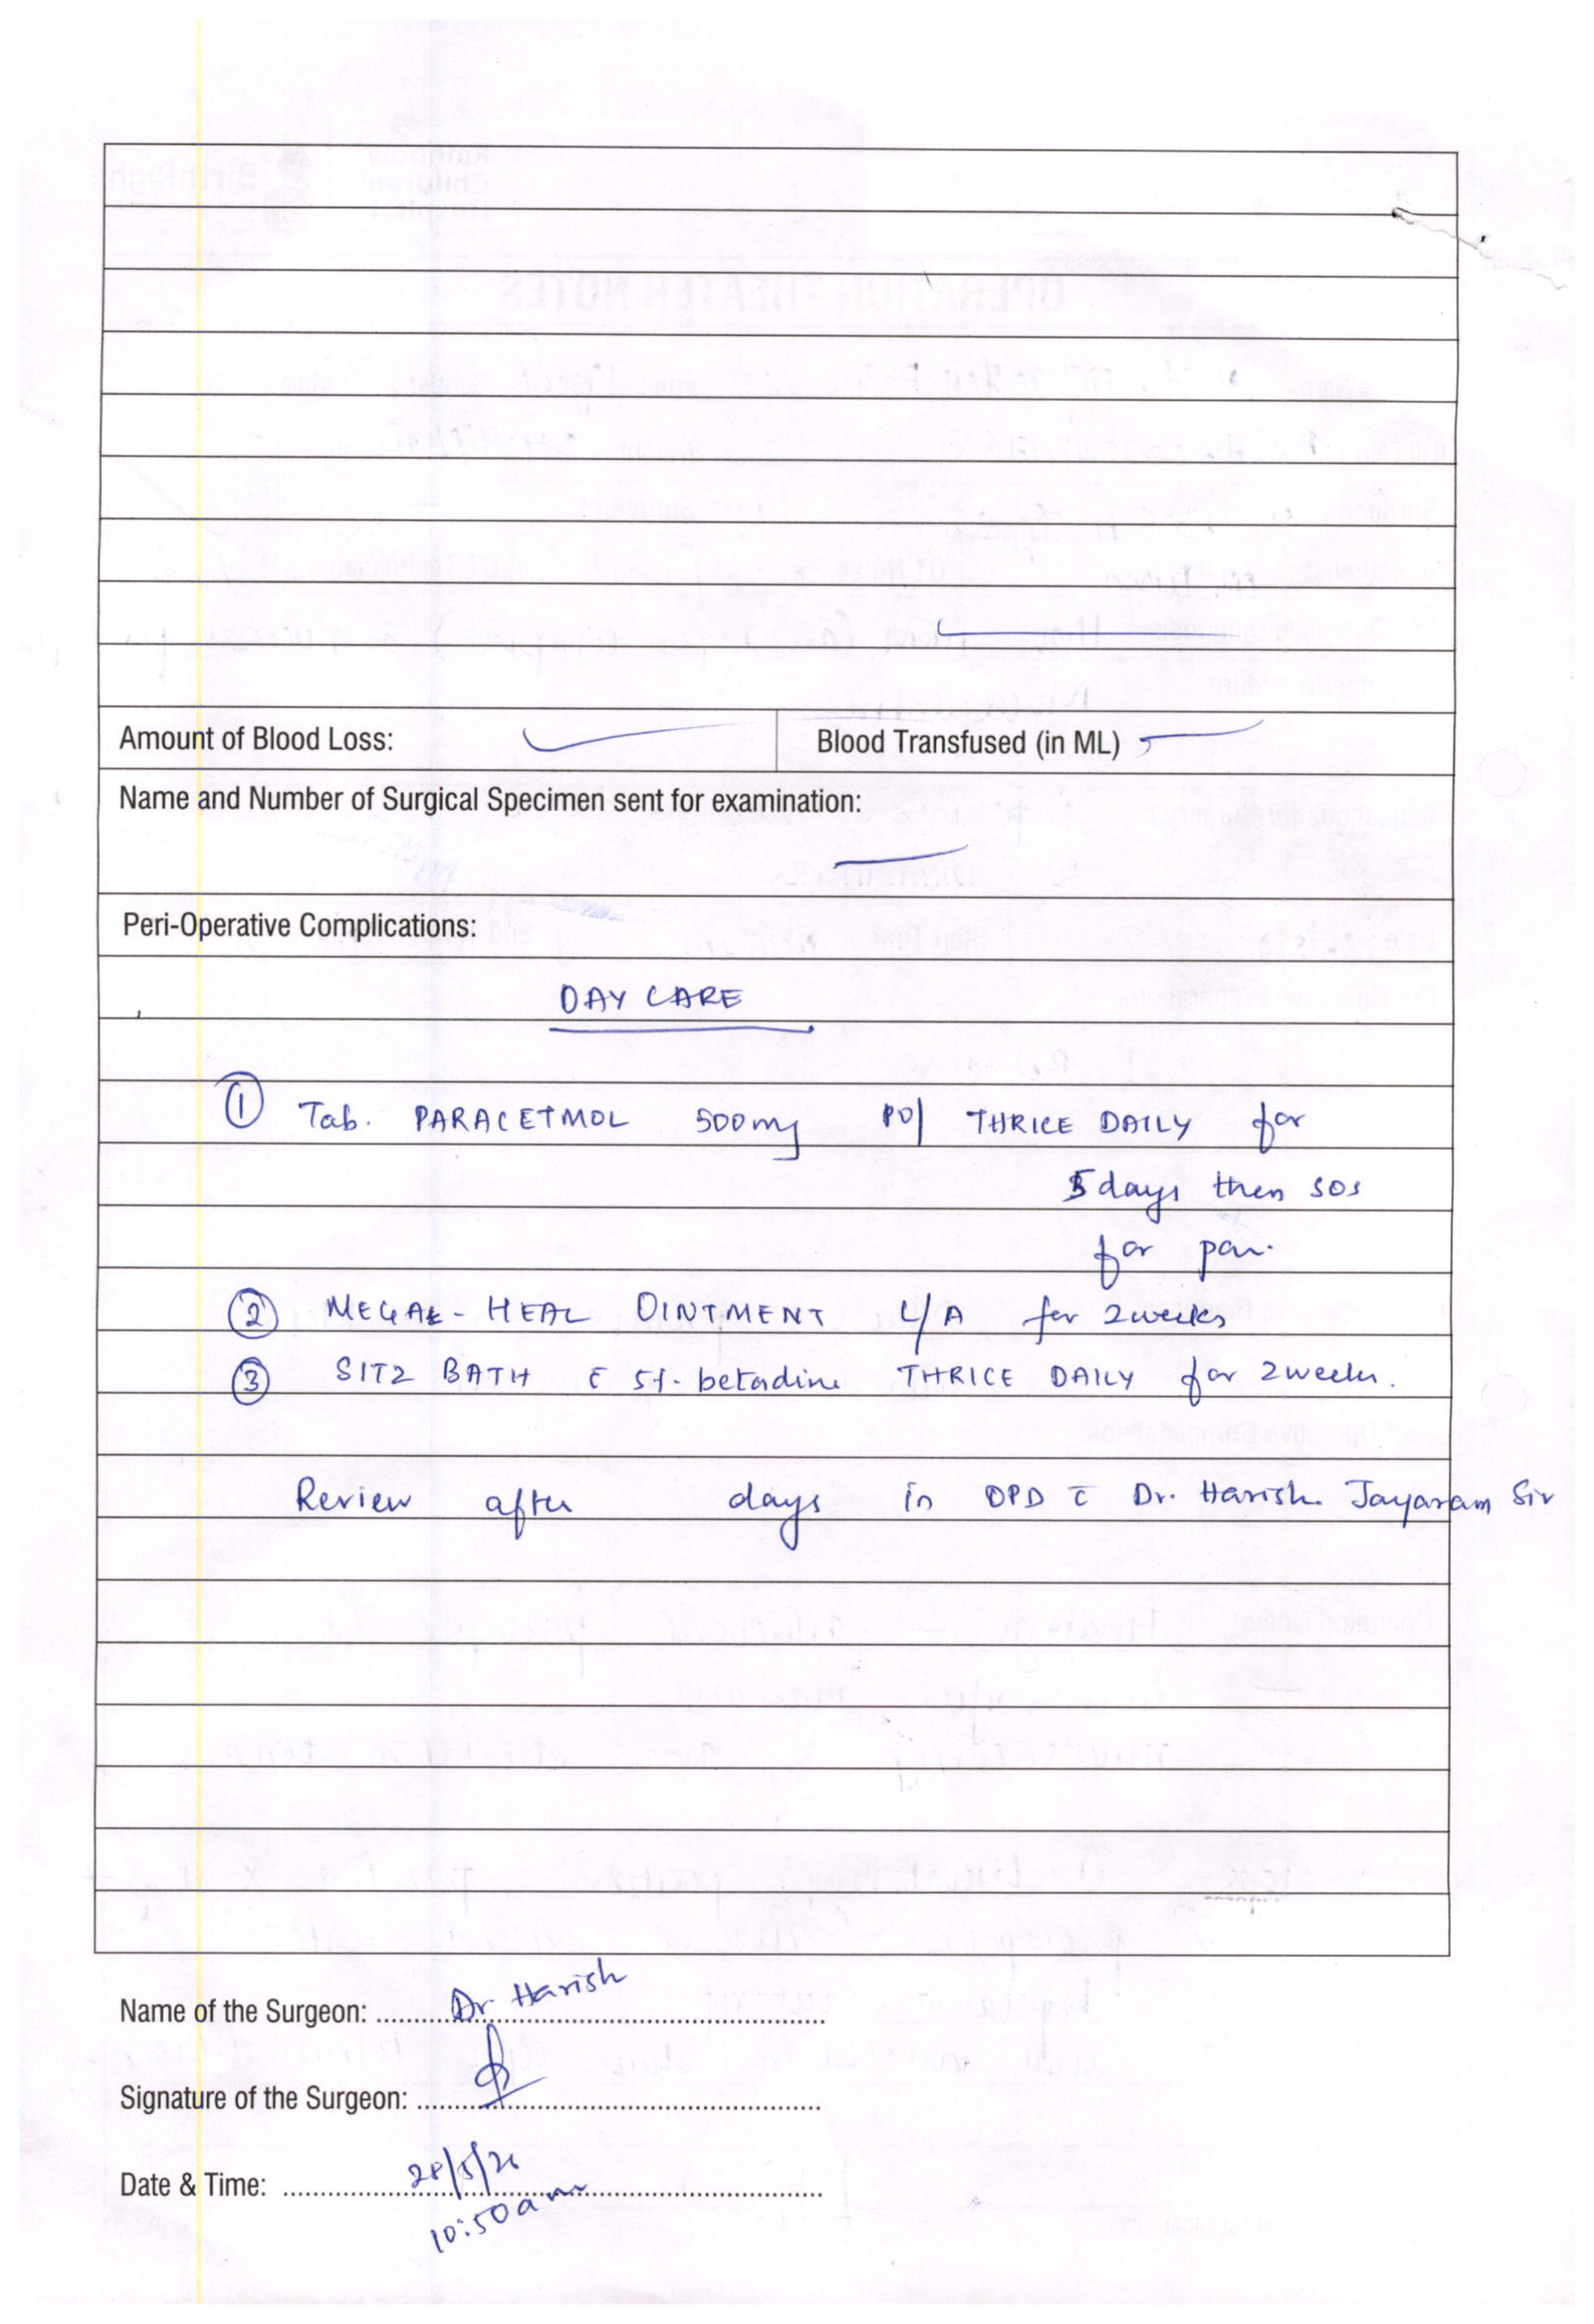 Amount of Blood Loss:
Blood Transfused (in ML)
Name and Number of Surgical Specimen sent for examination:
Peri-Operative Complications:
DAY CARE
① Tab. PARACETMOL 500mg PO/ THRICE DAILY for
5 days then SOS
for pain.
② MEGA-HEAL OINTMENT L/A for 2 weeks
③ SITZ BATH c̄ 5% betadine THRICE DAILY for 2 weeks.
Review after days in OPD c̄ Dr. Harish Jayaram Sir
Name of the Surgeon: Dr Harish
Signature of the Surgeon:
Date & Time: 28/5/26
10:50am